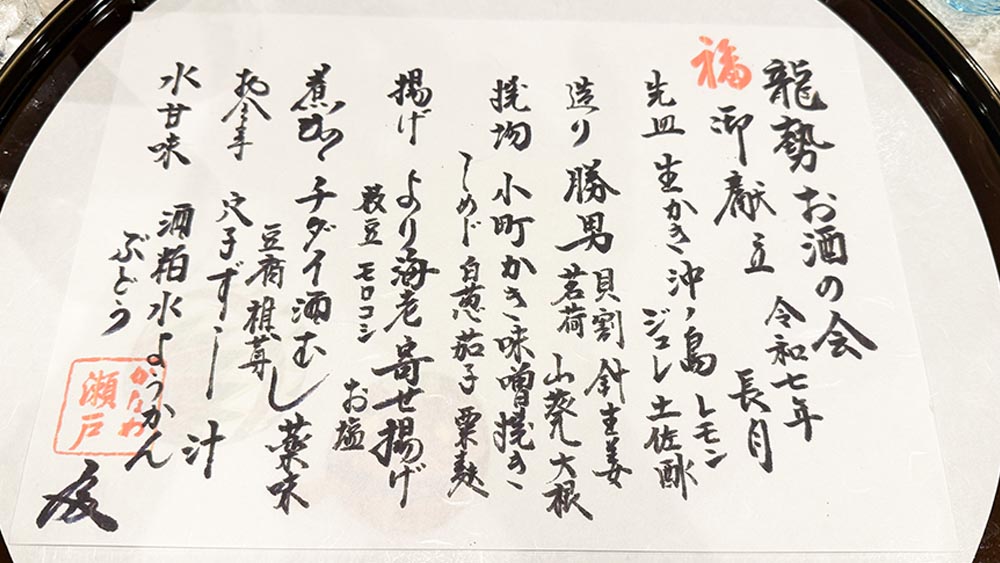 龍勢お酒の会
令和七年 長月
福
御献立
先皿 生かき 沖ノ島 レモン
ジュレ 土佐酢
造り 勝男 貝割 針生姜
茗荷 山葵 大根
焼物 小町かき 味噌焼き
しめじ 白葱 茄子 粟麩
揚げ より海老 寄せ揚げ
枝豆 モロコシ お塩
煮もの 子ダイ酒むし 薬味
豆腐 椎茸
お食事 穴子ずし 汁
水甘味 酒粕水ようかん
ぶどう
かなわ
瀬戸